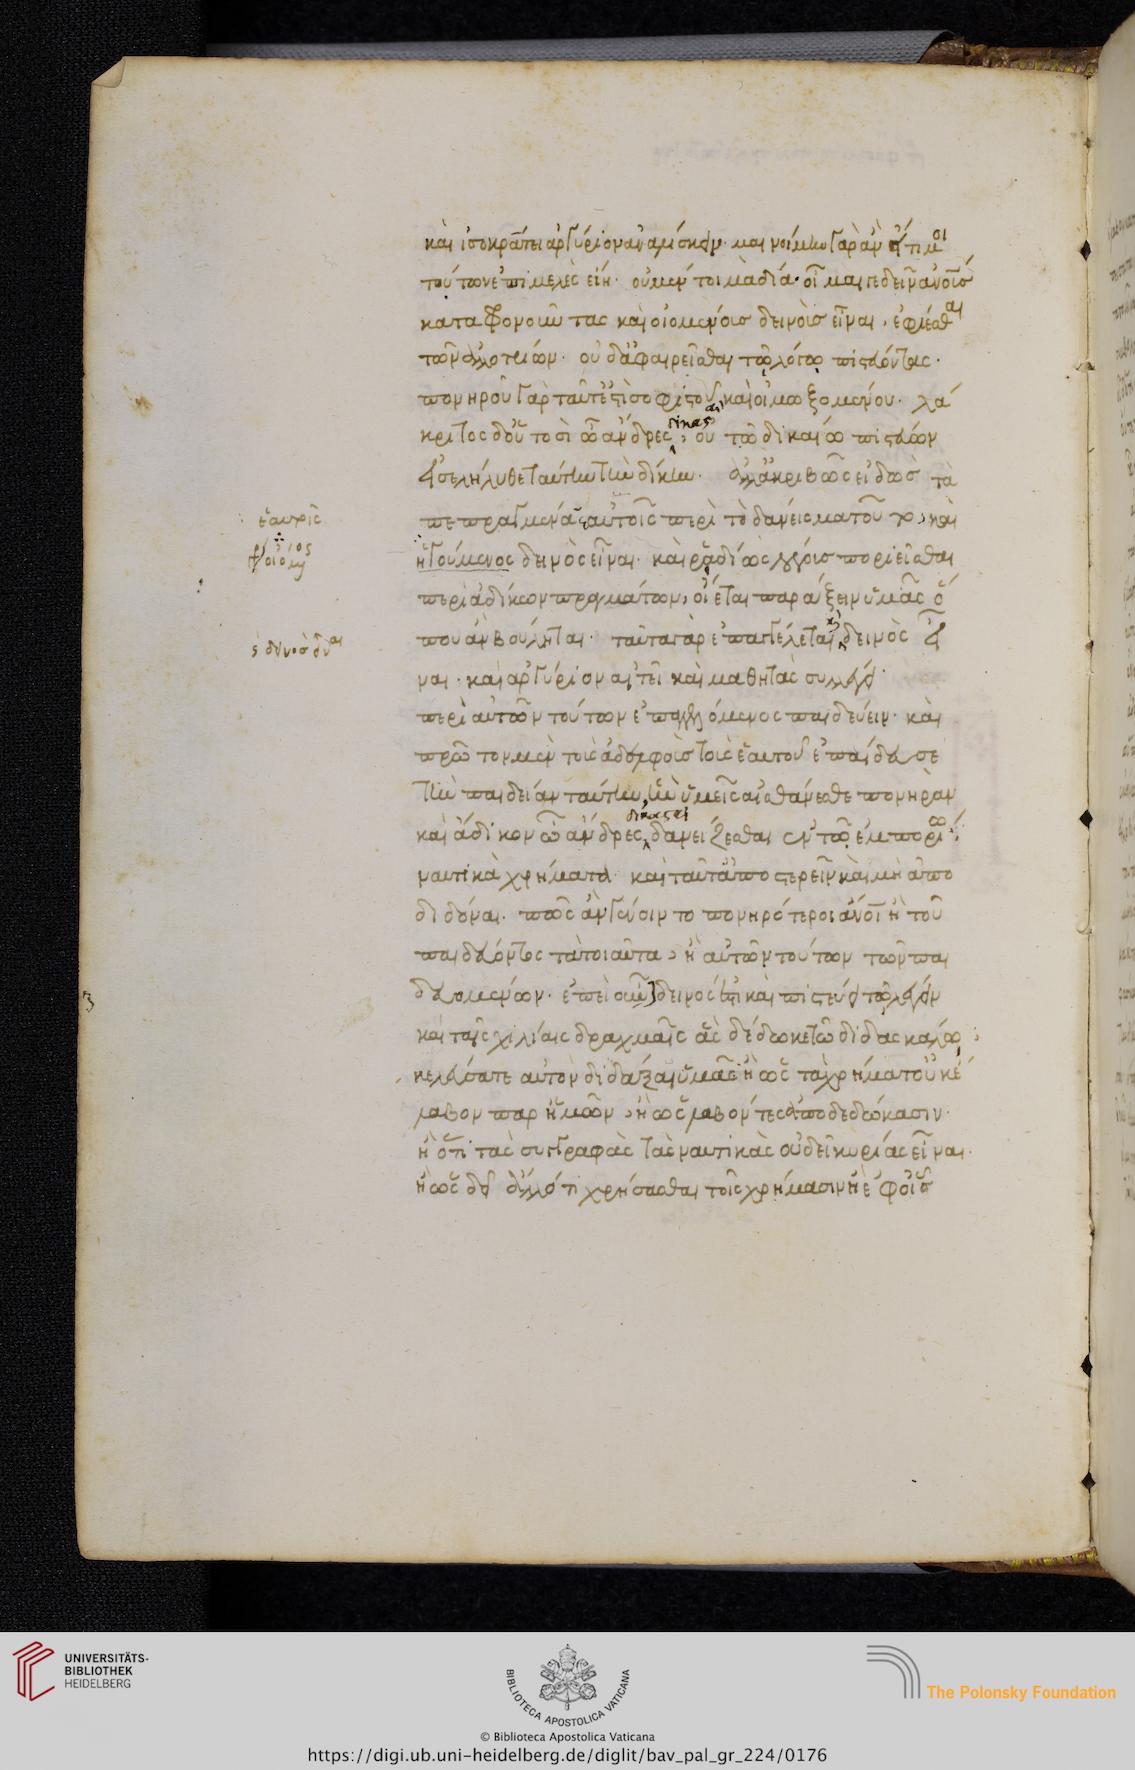 καὶ ἰσοκράτει ἀργύριον ἀναλίσκειν· μαινοίμην γὰρ ἂν εἴ τί μοι
τούτων ἐπιμελὲς εἴη· οὐ μέντοι μὰ δία· οἶμαί γε δεῖν ἀνοῖς
καταφρονοῦντας καὶ οἰομένοις δεινοῖς εἶναι, ἐφίεσθαι
τῶν ἀλλοτρίων· οὐδ' ἀφαιρεῖσθαι τῷ λόγῳ πιστεύοντας·
πονηροῦ γὰρ ταῦτ' ἐστὶ σοφιστοῦ καὶ οἰμωξομένου· λά
κριτος δ' οὑτοσὶ ὦ ἄνδρες δικασταὶ, οὐ τῷ δικαίῳ πιστεύων
εἰσελήλυθε ταύτην τὴν δίκην· ἀλλ' ἀκριβῶς εἰδὼς τὰ
πεπραγμένα ἑαυτοῖς περὶ τὸ δάνεισμα τοῦτο, καὶ
ἡγούμενος δεινὸς εἶναι· καὶ ῥᾳδίως λόγοις ποριεῖσθαι
περὶ ἀδίκων πραγμάτων, οἴεται παράξειν ὑμᾶς ὅ
που ἂν βούληται· ταῦτα γὰρ ἐπαγγέλεται καὶ δεινὸς εἶ
ναι· καὶ ἀργύριον αἰτεῖ καὶ μαθητὰς συλλέγει·
περὶ αὐτῶν τούτων ἐπαγγελλόμενος παιδεύειν· καὶ
πρῶτον μὲν τοὺς ἀδελφοὺς τοὺς ἑαυτοῦ ἐπαίδευσε
τὴν παιδείαν ταύτην, ἣν ὑμεῖς αἰσθάνεσθε πονηρὰν
καὶ ἄδικον ὦ ἄνδρες δικασταὶ, δανείζεσθαι ἐν τῷ ἐμπορίῳ
ναυτικὰ χρήματα· καὶ ταῦτ' ἀποστερεῖν καὶ μὴ ἀπο
διδόναι· πῶς ἂν γένοιντο πονηρότεροι ἄνοι ἢ τοῦ
παιδεύοντος τὰ τοιαῦτα, ἢ αὐτῶν τούτων τῶν παι
δευομένων· ἐπεὶ οὖν δεινός ἐστι καὶ πιστεύει τῷ λέγειν
καὶ ταῖς χιλίαις δραχμαῖς ἃς δέδωκε τῷ διδασκάλῳ
κελεύσατε αὐτὸν διδάξαι ὑμᾶς ἢ ὡς τὰ χρήματ' οὐκ ἔ
λαβον παρ' ἡμῶν, ἢ ὡς λαβόντες ἀποδεδώκασιν·
ἢ ὅτι τὰς συγγραφὰς τὰς ναυτικὰς οὐ δεῖ κυρίας εἶναι·
ἢ ὡς δεῖ ἄλλό τι χρήσασθαι τοῖς χρήμασιν ἢ ἐφ' οἷς
UNIVERSITÄTS-
BIBLIOTHEK
HEIDELBERG
BIBLIOTECA APOSTOLICA VATICANA
The Polonsky Foundation
© Biblioteca Apostolica Vaticana
https://digi.ub.uni-heidelberg.de/diglit/bav_pal_gr_224/0176